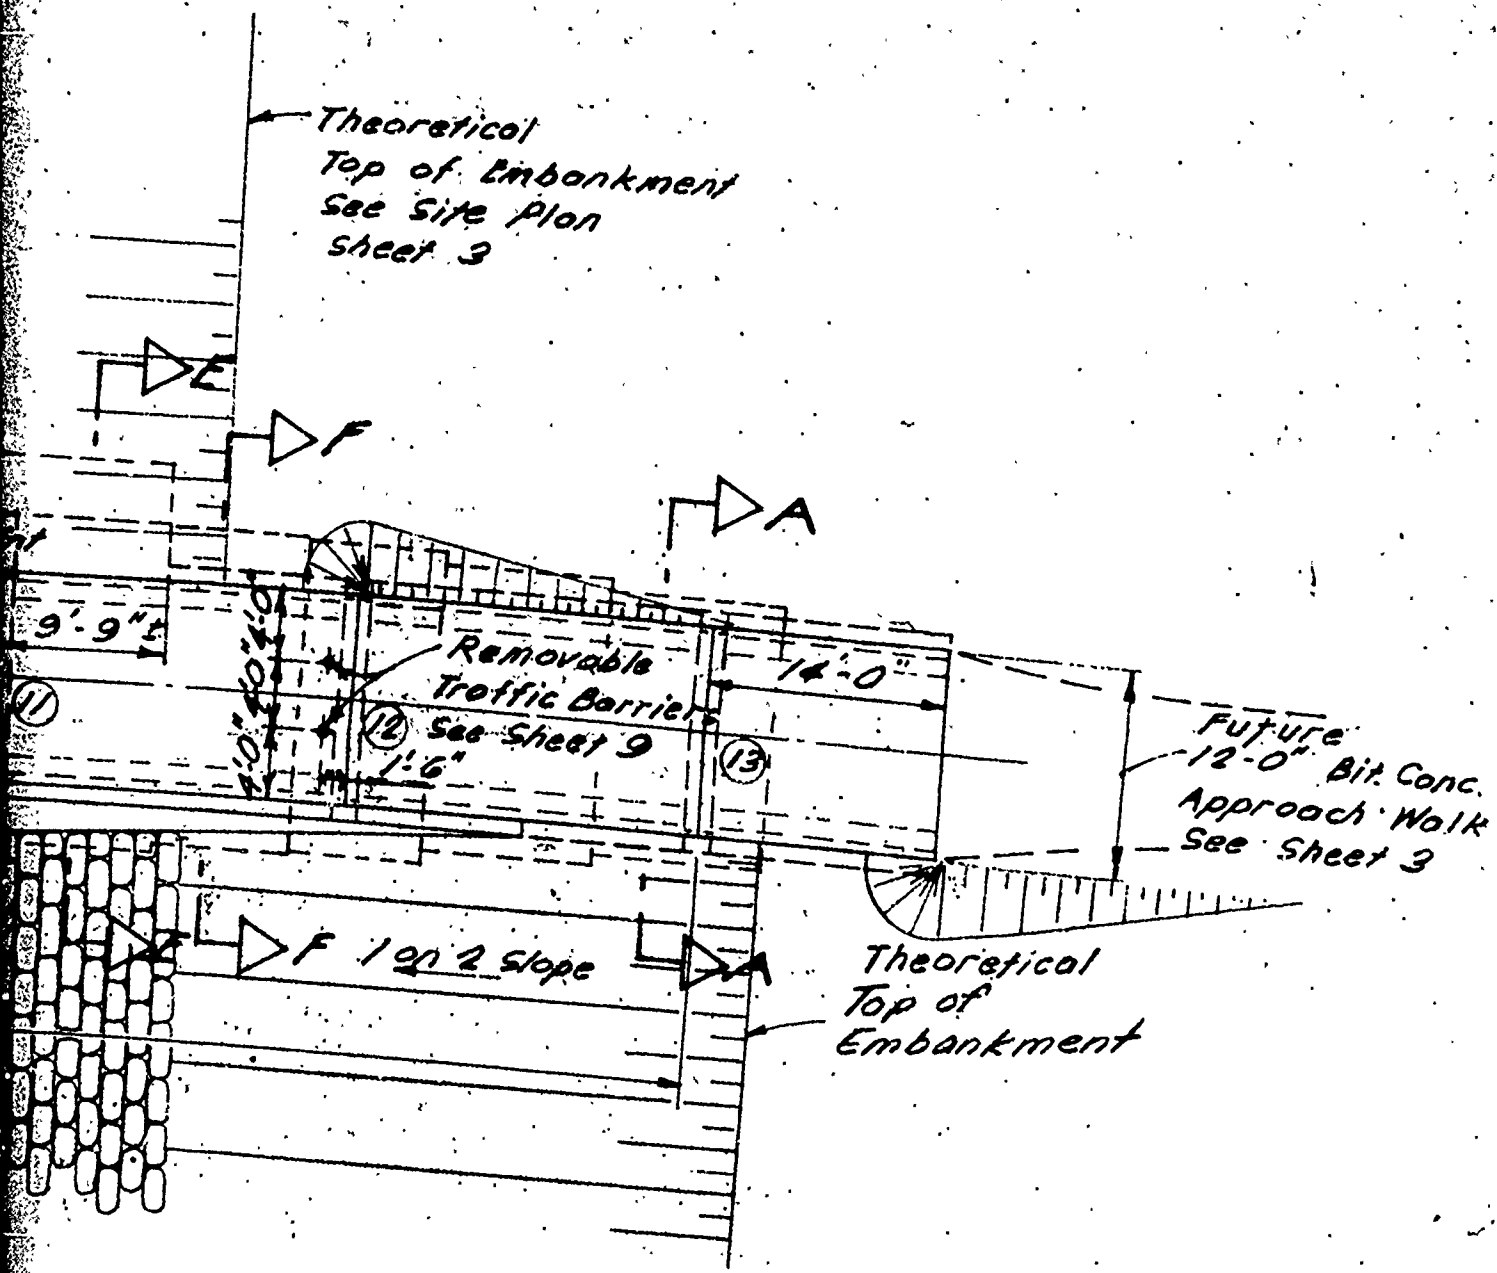 Theoretical
Top of Embankment
See Site Plan
sheet 3
E
F
A
9'-9"±
4'-0" 4'-0" 4'-0"
Removable
Traffic Barrier
See Sheet 9
14'-0"
11
12
13
1'-6"
Future
12-0" Bit. Conc.
Approach Walk
See Sheet 3
F
1 on 2 Slope
A
Theoretical
Top of
Embankment